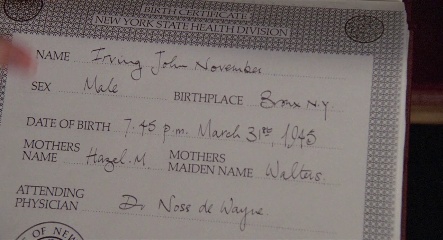 BIRTH CERTIFICATE
NEW YORK STATE HEALTH DIVISION
NAME Irving John November
SEX Male BIRTHPLACE Bronx NY
DATE OF BIRTH 7.45 p.m. March 31st, 1945
MOTHERS NAME Hazel. M. MOTHERS MAIDEN NAME Walters
ATTENDING PHYSICIAN Dr. Noss de Wayne
OF NEW